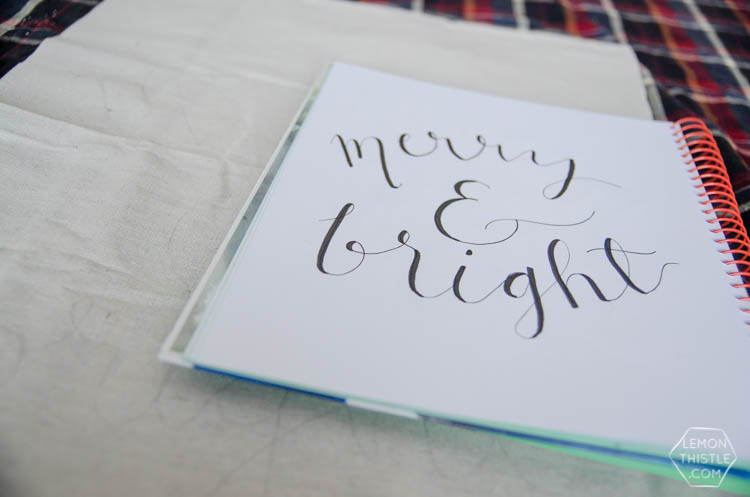 merry
&
bright
LEMON
THISTLE
.COM